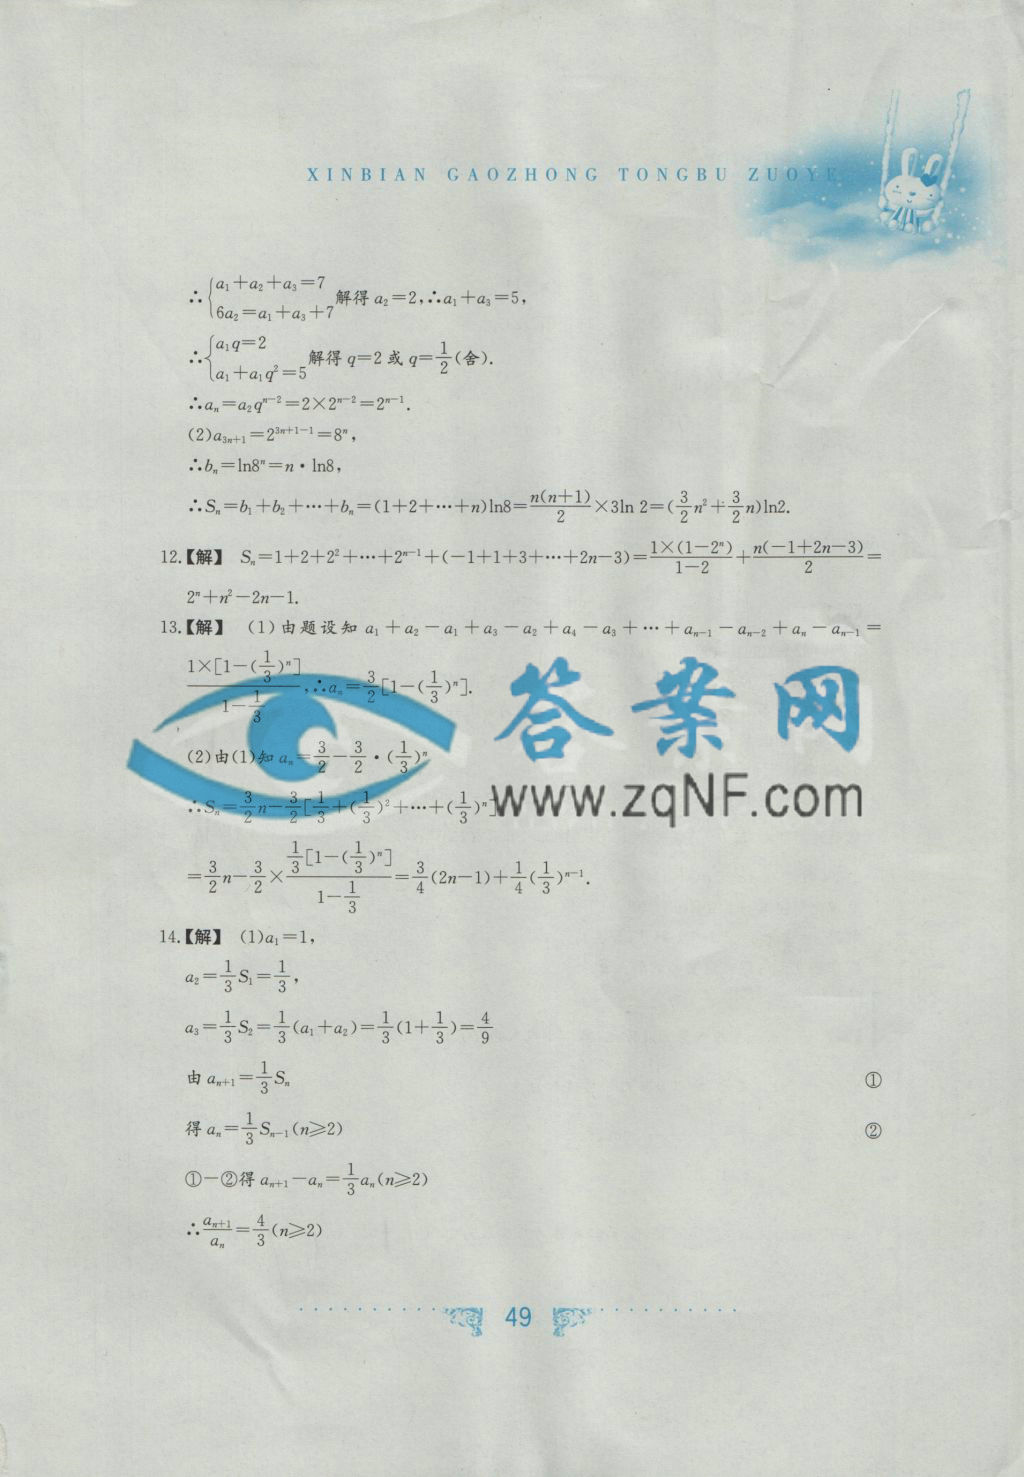 XINBIAN GAOZHONG TONGBU ZUOYE
∴{a₁+a₂+a₃=7 6a₂=a₁+a₃+7 解得 a₂=2,∴a₁+a₃=5,
∴{a₁q=2 a₁+a₁q²=5 解得 q=2 或 q=1/2(舍).
∴aₙ=a₂qⁿ⁻²=2×2ⁿ⁻²=2ⁿ⁻¹.
(2)a₃ₙ₊₁=2³ⁿ⁺¹⁻¹=8ⁿ,
∴bₙ=ln8ⁿ=n·ln8,
∴Sₙ=b₁+b₂+⋯+bₙ=(1+2+⋯+n)ln8=n(n+1)/2×3ln 2=(3/2n²+3/2n)ln2.
12.【解】 Sₙ=1+2+2²+⋯+2ⁿ⁻¹+(-1+1+3+⋯+2n-3)=1×(1-2ⁿ)/(1-2)+n(-1+2n-3)/2=
2ⁿ+n²-2n-1.
13.【解】 (1)由题设知 a₁+a₂-a₁+a₃-a₂+a₄-a₃+⋯+aₙ₋₁-aₙ₋₂+aₙ-aₙ₋₁=
1×[1-(1/3)ⁿ]/(1-1/3),∴aₙ=3/2[1-(1/3)ⁿ].
(2)由(1)知 aₙ=3/2-3/2·(1/3)ⁿ
∴Sₙ=3/2n-3/2[1/3+(1/3)²+⋯+(1/3)ⁿ]
=3/2n-3/2×1/3[1-(1/3)ⁿ]/(1-1/3)=3/4(2n-1)+1/4(1/3)ⁿ⁻¹.
答案网
www.zqNF.com
14.【解】 (1)a₁=1,
a₂=1/3S₁=1/3,
a₃=1/3S₂=1/3(a₁+a₂)=1/3(1+1/3)=4/9
由 aₙ₊₁=1/3Sₙ ①
得 aₙ=1/3Sₙ₋₁(n⩾2) ②
①-②得 aₙ₊₁-aₙ=1/3aₙ(n⩾2)
∴aₙ₊₁/aₙ=4/3(n⩾2)
49